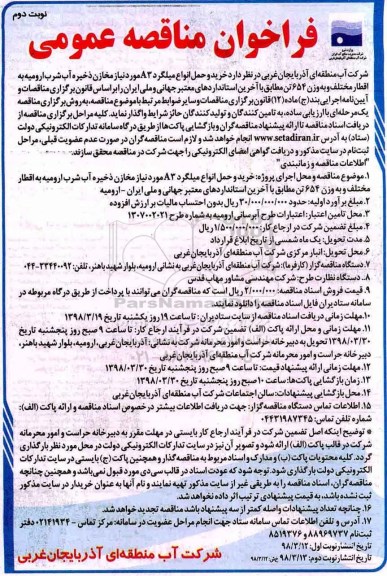 نوبت دوم
فراخوان مناقصه عمومی
شرکت آب منطقه‌ای آذربایجان‌غربی در نظر دارد خرید و حمل انواع میلگرد A3 مورد نیاز مخازن ذخیره آب شرب ارومیه به
اقطار مختلف و به وزن 654 تن مطابق با آخرین استانداردهای معتبر جهانی و ملی ایران را بر اساس قانون برگزاری مناقصات و
آیین‌نامه اجرایی بند (ج) ماده (12) قانون برگزاری مناقصات و سایر ضوابط مرتبط با موضوع مناقصه، به روش برگزاری مناقصه
یک مرحله‌ای با ارزیابی ساده، به تامین‌کنندگان و تولیدکنندگان حائز شرایط واگذار نماید. کلیه مراحل برگزاری مناقصه از
دریافت اسناد مناقصه تا ارائه پیشنهاد مناقصه‌گران و بازگشایی پاکت‌ها از طریق درگاه سامانه تدارکات الکترونیکی دولت
(ستاد) به آدرس www.setadiran.ir انجام خواهد شد و لازم است مناقصه‌گران در صورت عدم عضویت قبلی، مراحل
ثبت‌نام در سایت مذکور و دریافت گواهی امضای الکترونیکی را جهت شرکت در مناقصه محقق سازند.
"اطلاعات مناقصه و زمانبندی"
1. موضوع مناقصه و محل اجرای پروژه: خرید و حمل انواع میلگرد A3 مورد نیاز مخازن ذخیره آب شرب ارومیه به اقطار
مختلف و به وزن 654 تن مطابق با آخرین استانداردهای معتبر جهانی و ملی ایران - ارومیه
2. مبلغ برآورد اولیه: حدود 30/000/000/000 ریال بدون احتساب مالیات بر ارزش افزوده
3. محل تامین اعتبار: اعتبارات طرح آبرسانی ارومیه به شماره طرح
4. مبلغ تضمین شرکت در ارجاع کار: ریال
5. مدت تحویل: یک ماه شمسی از تاریخ ابلاغ قرارداد
6. محل تحویل: انبار مرکزی شرکت آب منطقه‌ای آذربایجان‌غربی
7. دستگاه مناقصه‌گزار (کارفرما): شرکت آب منطقه‌ای آذربایجان‌غربی به نشانی ارومیه، بلوار شهید باهنر، تلفن: 33440092-044
8. دستگاه نظارت طرح: شرکت مهندسی مشاور مهاب قدس
9. قیمت فروش اسناد مناقصه: 2/000/000 ریال است که مناقصه‌گران می‌توانند با پرداخت از طریق درگاه مربوطه در
سامانه ستاد ایران فایل اسناد مناقصه را دانلود نمایند.
10. مهلت زمانی دریافت اسناد مناقصه از سایت ستاد ایران: تا ساعت 19 روز یکشنبه تاریخ 1398/03/19
11. مهلت زمانی و محل ارائه پاکت (الف) تضمین شرکت در فرآیند ارجاع کار: تا ساعت 9 صبح روز پنجشنبه تاریخ
1398/03/30 تحویل به دبیرخانه حراست و امور محرمانه شرکت به نشانی: آذربایجان‌غربی، ارومیه، بلوار شهید باهنر،
دبیرخانه حراست و امور محرمانه شرکت آب منطقه‌ای آذربایجان‌غربی
12. مهلت زمانی ارائه پیشنهاد قیمت: تا ساعت 9 صبح روز پنجشنبه تاریخ 1398/03/30
13. زمان بازگشایی پاکت‌ها: ساعت 10 صبح روز پنجشنبه تاریخ 1398/03/30
14. محل بازگشایی پیشنهادات: سالن اجتماعات شرکت آب منطقه‌ای آذربایجان‌غربی
15. اطلاعات تماس دستگاه مناقصه‌گزار: جهت دریافت اطلاعات بیشتر در خصوص اسناد مناقصه و ارائه پاکت (الف):
شماره تلفن تماس: 04431987345
* توضیح اینکه اصل تضمین شرکت در فرآیند ارجاع کار بایستی در مهلت مقرر به دبیرخانه حراست و امور محرمانه
شرکت در قالب پاکت (الف) ارائه شود و تصویر آن نیز در سایت تدارکات الکترونیکی دولت در محل مورد نظر بارگذاری
گردد. کلیه محتویات پاکت (ب) و مدارک و اسناد مربوط به مناقصه‌گذار و همچنین پاکت (ج) بایستی در سایت تدارکات
الکترونیکی دولت بارگذاری شود. توجه شود که عودت اسناد در قالب سی‌دی مورد قبول نمی‌باشد و همچنین چنانچه
مناقصه‌گران، اسناد مناقصه را به طریقی غیر از سایت مذکور تهیه نمایند و نام آنها به عنوان خریدار در سایت مذکور
ثبت نشده باشد، به قیمت پیشنهادی ترتیب اثر داده نخواهد شد.
16. چنانچه تعداد پیشنهادات واصله کمتر از سه پیشنهاد باشد مناقصه تجدید خواهد شد.
17. آدرس و تلفن اطلاعات تماس سامانه ستاد جهت انجام مراحل عضویت در سامانه: مرکز تماس - 02141934 دفتر
ثبت‌نام 88969737 و 85193768
تاریخ انتشار نوبت اول: 98/3/12
تاریخ انتشار نوبت دوم: 98/3/13
شرکت آب منطقه‌ای آذربایجان‌غربی